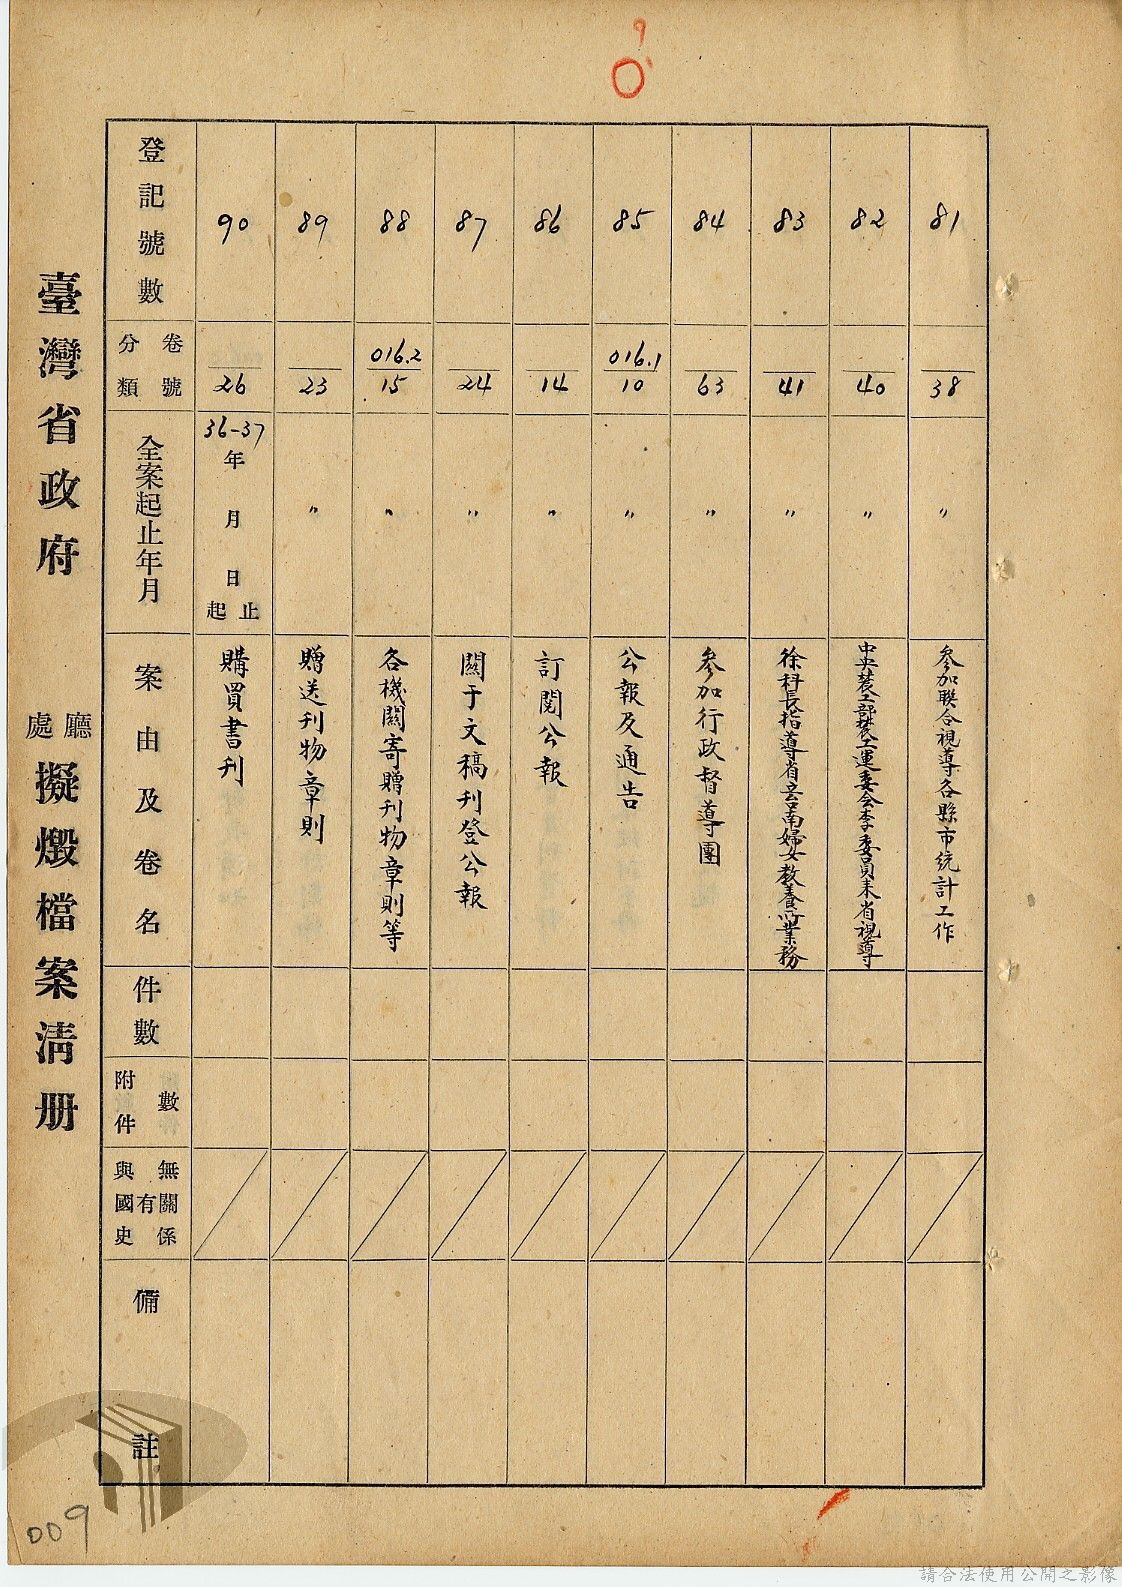 9
臺灣省政府 廳處 擬燬檔案清册
登記號數
分類 卷號
全案起止年月
案由及卷名
件數
附件數
與國史有無關係
備註
90
26
36-37年 月 日 起止
購買書刊
89
23
〃
贈送刊物章則
88
016.2
15
〃
各機關寄贈刊物章則等
87
24
〃
關于文稿刊登公報
86
14
〃
訂閱公報
85
016.1
10
〃
公報及通告
84
63
〃
參加行政督導團
83
41
〃
徐科長指導省立台南婦女教養所業務
82
40
〃
中央農工部農工運委会李委員来省視導
81
38
〃
參加聯合視導各縣市統計工作
009
請合法使用公開之影像